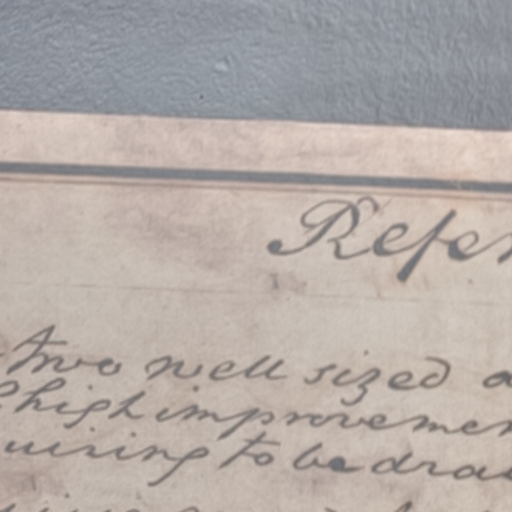 Refer
two well sized a
high improvemen
uiring to be drai